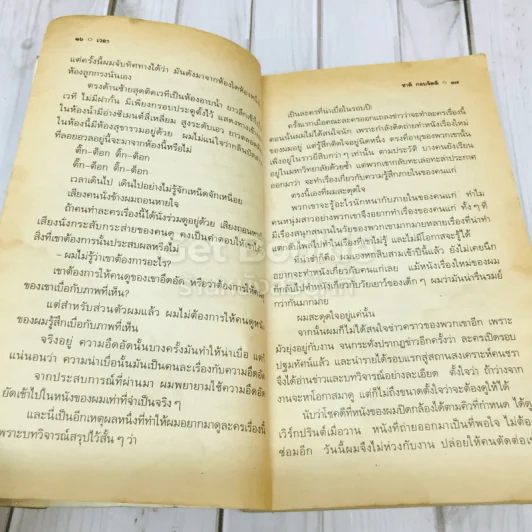 ๑๖ ○ เวลา
แต่ครั้งนี้ผมจับทิศทางได้ว่า มันดังมาจากห้องใดห้องหนึ่ง
ห้องลูกกรงนั่นเอง
ตรงด้านซ้ายสุดติดเวทีเป็นห้องอาบน้ำ
เวที ไม่มีฝากั้น มีเพียงกรอบประตูตั้งไว้
ในห้องน้ำมีอ่างซีเมนต์สี่เหลี่ยม สูงระดับเอว
ในห้องนี้มีห้องสุขารวมอยู่ด้วย ผมไม่แน่ใจว่า
ที่ลอยอวลอยู่นี้จะมาจากห้องนี้หรือไม่
ติ๊ก-ต็อก ติ๊ก-ต็อก
ติ๊ก-ต็อก ติ๊ก-ต็อก
เวลาเดินไป เดินไปอย่างไม่รู้จักเหน็ดจักเหนื่อย
เสียงคนนั่งข้างผมถอนหายใจ
ถ้าคนทำละครเรื่องนี้ได้นั่งร่วมดูอยู่ด้วย
เสียงนั่งกระสับกระส่ายของคนดู คงเป็นคำตอบให้เขาได้
สิ่งที่เขาต้องการนั้นประสบผลหรือไม่
- ผมไม่รู้ว่าเขาต้องการอะไร?
เขาต้องการให้คนดูของเขาอึดอัด หรือว่าต้องการให้
ของเขาเบื่อกับภาพที่เห็น?
แต่สำหรับส่วนตัวผมแล้ว ผมไม่ต้องการให้คนดูหนัง
ของผมรู้สึกเบื่อกับภาพที่เห็น
จริงอยู่ ความอึดอัดนั้นบางครั้งมันทำให้น่าเบื่อ แต่
แน่นอนว่า ความน่าเบื่อนั้นมันเป็นคนละเรื่องกับความอึดอัด
จากประสบการณ์ที่ผ่านมา ผมพยายามใช้ความอึดอัด
ยัดเข้าไปในหนังของผมเท่าที่จำเป็นจริง ๆ
และนี่เป็นอีกเหตุผลหนึ่งที่ทำให้ผมอยากมาดูละครเรื่องนี้
เพราะบทวิจารณ์สรุปไว้สั้น ๆ ว่า
ชาติ กอบจิตติ ○ ๑๗
เป็นละครที่น่าเบื่อในรอบปี!
ครั้งแรกเมื่อคณะละครออกแถลงข่าวว่าจะทำละครเรื่องนี้
ตอนนั้นผมไม่ได้สนใจนัก เพราะกำลังติดถ่ายทำหนังเรื่องใหม่
ของผมอยู่ แต่รู้สึกติดใจอยู่นิดหนึ่ง ตรงที่อายุของพวกเขานั้น
เพิ่งอยู่ในราวยี่สิบกว่า ๆ เท่านั้น ตามประวัติ บางคนยังเรียน
อยู่ในมหาวิทยาลัยด้วยซ้ำ แต่พวกเขากลับทะเล่อทะล่าประกาศ
ออกมาว่า จะทำเรื่องเกี่ยวกับความรู้สึกภายในของคนแก่
ตรงนี้เองที่ผมสะดุดใจ
พวกเขาจะรู้อะไรนักหนากับภายในของคนแก่ ทำไม
คนหนุ่มสาวอย่างพวกเขาจึงอยากทำเรื่องของคนแก่ ทั้ง ๆ ที่
มีเรื่องสนุกสนานในวัยของพวกเขามากมายหลายเรื่องที่น่าทำ
แต่กลับไพล่ไปทำในเรื่องที่เขาไม่รู้ และไม่มีโอกาสจะรู้ได้
ที่น่าขำก็คือ ผมเองหกสิบสามเข้าปีนี้แล้ว ยังไม่เคยนึก
อยากจะทำหนังเกี่ยวกับคนแก่เลย แม้หนังเรื่องใหม่ของผม
ก็กลับไปทำหนังเกี่ยวกับวัยเยาว์ของเด็ก ๆ ผมว่ามันน่ารื่นรมย์
กว่ากันมากมาย
ผมสะดุดใจอยู่แค่นั้น
จากนั้นผมก็ไม่ได้สนใจข่าวคราวของพวกเขาอีก เพราะ
มัวยุ่งอยู่กับงาน จนกระทั่งปรากฏข่าวอีกครั้งว่า ละครเปิดรอบ
ปฐมทัศน์แล้ว และนำรายได้รอบแรกสู่สถานสงเคราะห์คนชรา
จึงได้อ่านข่าวและบทวิจารณ์อย่างละเอียด ตั้งใจว่า ถ้าว่างจาก
งานจะหาโอกาสมาดู แต่ก็ไม่ถึงขนาดตั้งใจว่าจะต้องดูให้ได้
นับว่าโชคดีที่หนังของผมปิดกล้องได้ตามคิวที่กำหนด ได้ดู
เวิร์กปรินต์เมื่อวาน หนังที่ถ่ายออกมาเป็นที่พอใจ ไม่ต้อง
ซ่อมอีก วันนี้ผมจึงไม่ห่วงกับงาน ปล่อยให้คนตัดต่อ